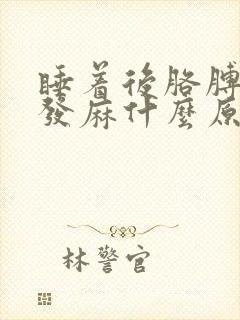 睡着後胳膊
發麻什麼原
林警官